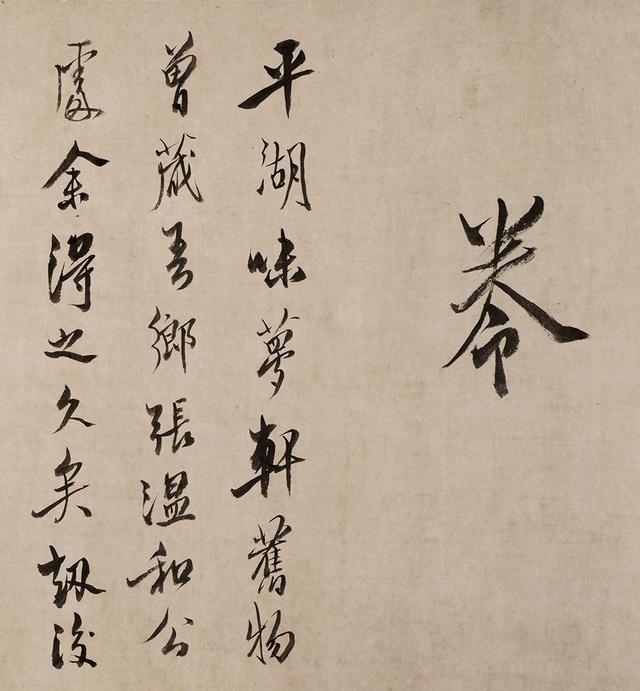 卷
平湖味夢軒舊物
曾藏吾鄉張溫和公
處余得之久矣刼後